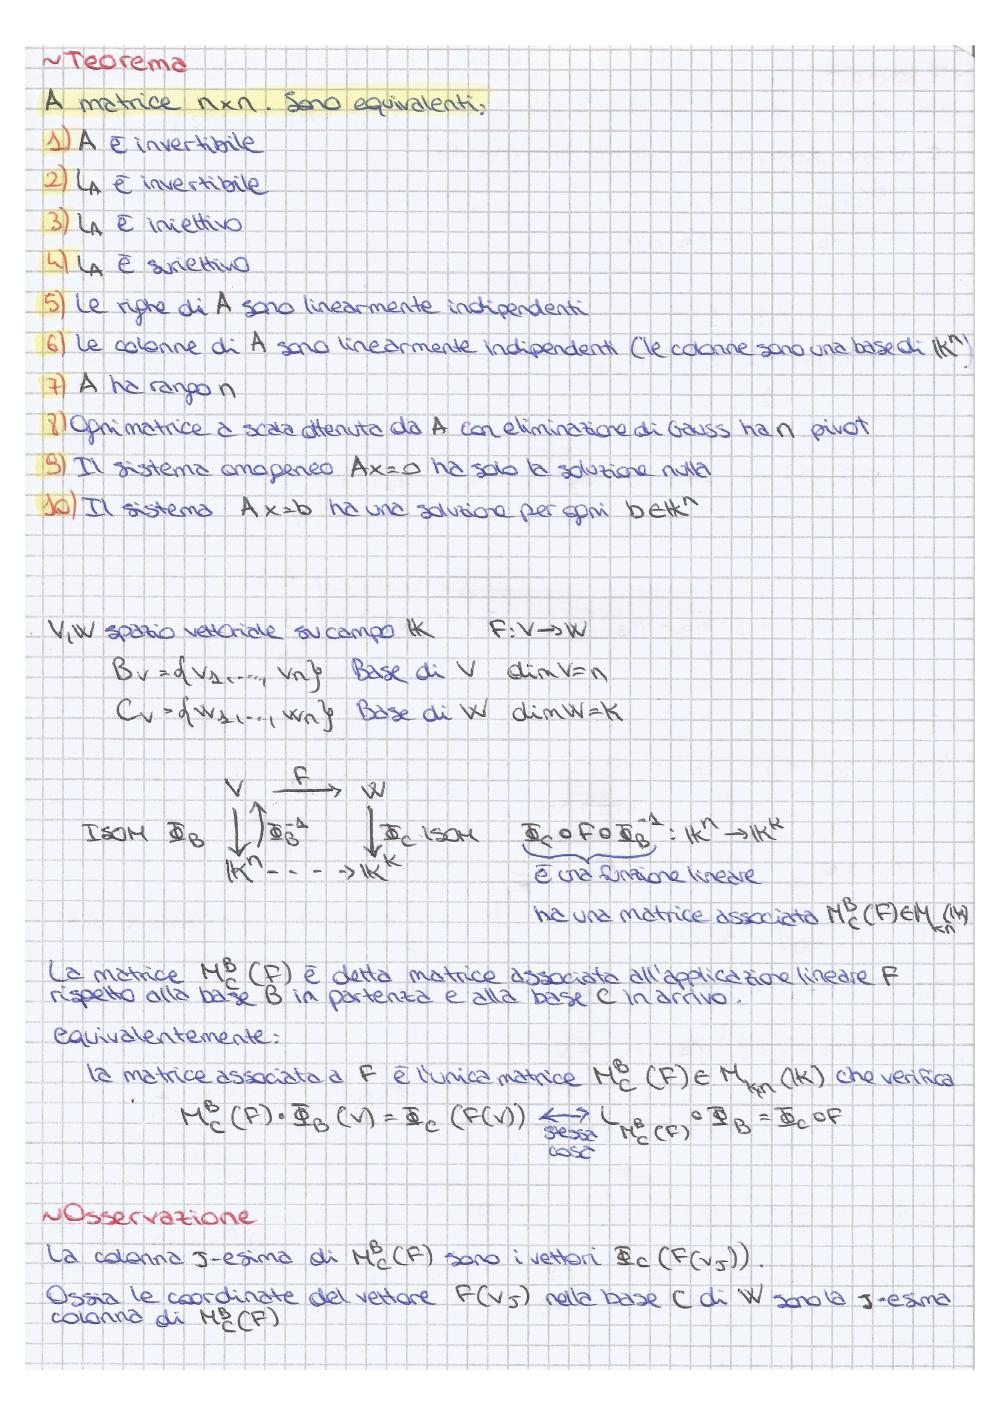 ~Teorema
A matrice n×n. Sono equivalenti:
1) A è invertibile
2) L_A è invertibile
3) L_A è iniettivo
4) L_A è suriettivo
5) Le righe di A sono linearmente indipendenti
6) Le colonne di A sono linearmente indipendenti (le colonne sono una base di 𝕂ⁿ)
7) A ha rango n
8) Ogni matrice a scala ottenuta da A con eliminazione di Gauss ha n pivot
9) Il sistema omogeneo Ax=0 ha solo la soluzione nulla
10) Il sistema Ax=b ha una soluzione per ogni b∈𝕂ⁿ
V,W spazio vettoriale su campo 𝕂 F:V→W
B_V={v₁,...,vₙ} Base di V dimV=n
C_V={w₁,...,wₙ} Base di W dimW=K
V F→ W
ISOM Φ_B ↓↑Φ_B⁻¹ ↓Φ_C ISOM Φ_C∘F∘Φ_B⁻¹ : 𝕂ⁿ→𝕂ᵏ
𝕂ⁿ- - - -→𝕂ᵏ è una funzione lineare
ha una matrice associata M_C^B(F)∈M_{kn}(𝕂)
La matrice M_C^B(F) è detta matrice associata all'applicazione lineare F
rispetto alla base B in partenza e alla base C in arrivo.
equivalentemente:
la matrice associata a F è l'unica matrice M_C^B(F)∈M_{k,n}(𝕂) che verifica
M_C^B(F)·Φ_B(v)=Φ_C(F(v)) ⟷ L_{M_C^B(F)}∘Φ_B=Φ_C∘F
stessa
cosa
~Osservazione
La colonna J-esima di M_C^B(F) sono i vettori Φ_C(F(v_J)).
Ossia le coordinate del vettore F(v_J) nella base C di W sono la J-esima
colonna di M_C^B(F)